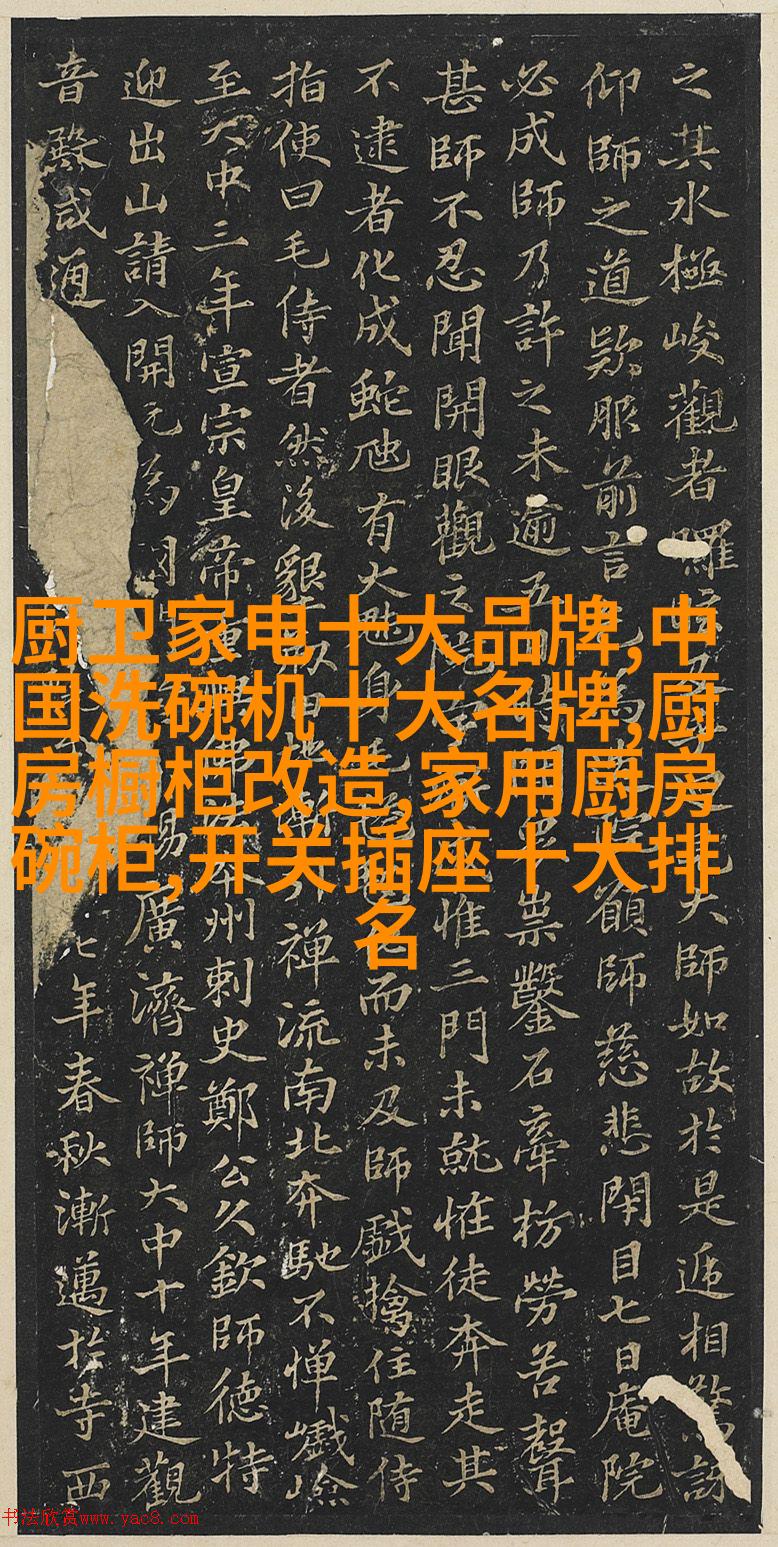 之其水極峻觀者
大師如故於是遞相驚訝
仰師之道欵服前言
願師慈悲閑目七日庵院
必成師乃許之未逾五日時
祟鑿石牽枋勞苦聲
甚師不忍聞開眼觀之
惟三門未就恠徒奔走其
不逮者化成蛇虺有大虺身
而未及師戲擒住随侍
指使曰毛侍者然後墾
禅流南北奔馳不惮巇嶮
至大中三年宣宗皇帝
州刺史鄭公久欽師德特
迎出山請入開元為
廣濟禅師大中十年建觀
音殿咸通
七年春秋漸邁於寺西
厨卫家电十大品牌,中
国洗碗机十大名牌,厨
房橱柜改造,家用厨房
碗柜,开关插座十大排
名
书法欣赏www.yac8.com